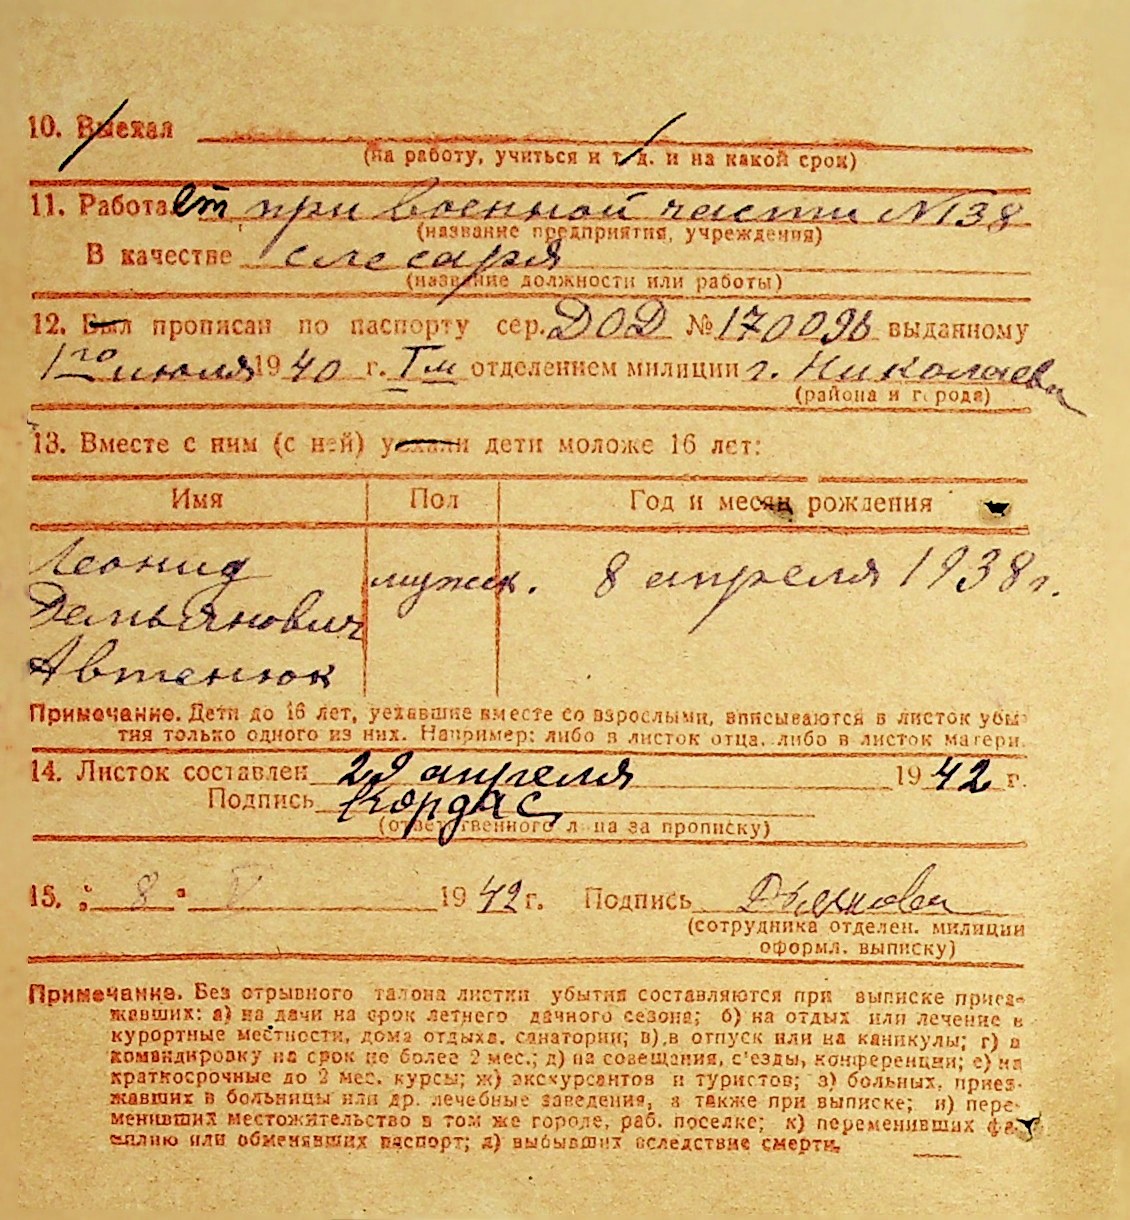 10. Выехал
(на работу, учиться и т. д. и на какой срок)
11. Работает при военной части № 138
(название предприятия, учреждения)
В качестве слесаря
(название должности или работы)
12. Был прописан по паспорту сер. ДОД № 170096 выданному
1го июля 1940 г. I м отделением милиции г. Николаева
(района и города)
13. Вместе с ним (с ней) уехали дети моложе 16 лет:
Имя Пол Год и месяц рождения
Леонид мужск. 8 апреля 1938 г.
Демьянович
Автенюк
Примечание. Дети до 16 лет, уехавшие вместе со взрослыми, вписываются в листок убы-
тия только одного из них. Например: либо в листок отца, либо в листок матери.
14. Листок составлен 29 апреля 1942 г.
Подпись Кордас
(ответственного лица за прописку)
15. „ 8 “ V 1942 г. Подпись
(сотрудника отделен. милиции
оформл. выписку)
Примечание. Без отрывного талона листки убытия составляются при выписке приез-
жавших: а) на дачи на срок летнего дачного сезона; б) на отдых или лечение в
курортные местности, дома отдыха, санатории; в) в отпуск или на каникулы; г) в
командировку на срок не более 2 мес.; д) на совещания, с'езды, конференции; е) на
краткосрочные до 2 мес. курсы; ж) экскурсантов и туристов; з) больных, приез-
жавших в больницы или др. лечебные заведения, а также при выписке; и) пере-
менивших местожительство в том же городе, раб. поселке; к) переменивших фа-
милию или обменявших паспорт; л) выбывших вследствие смерти.